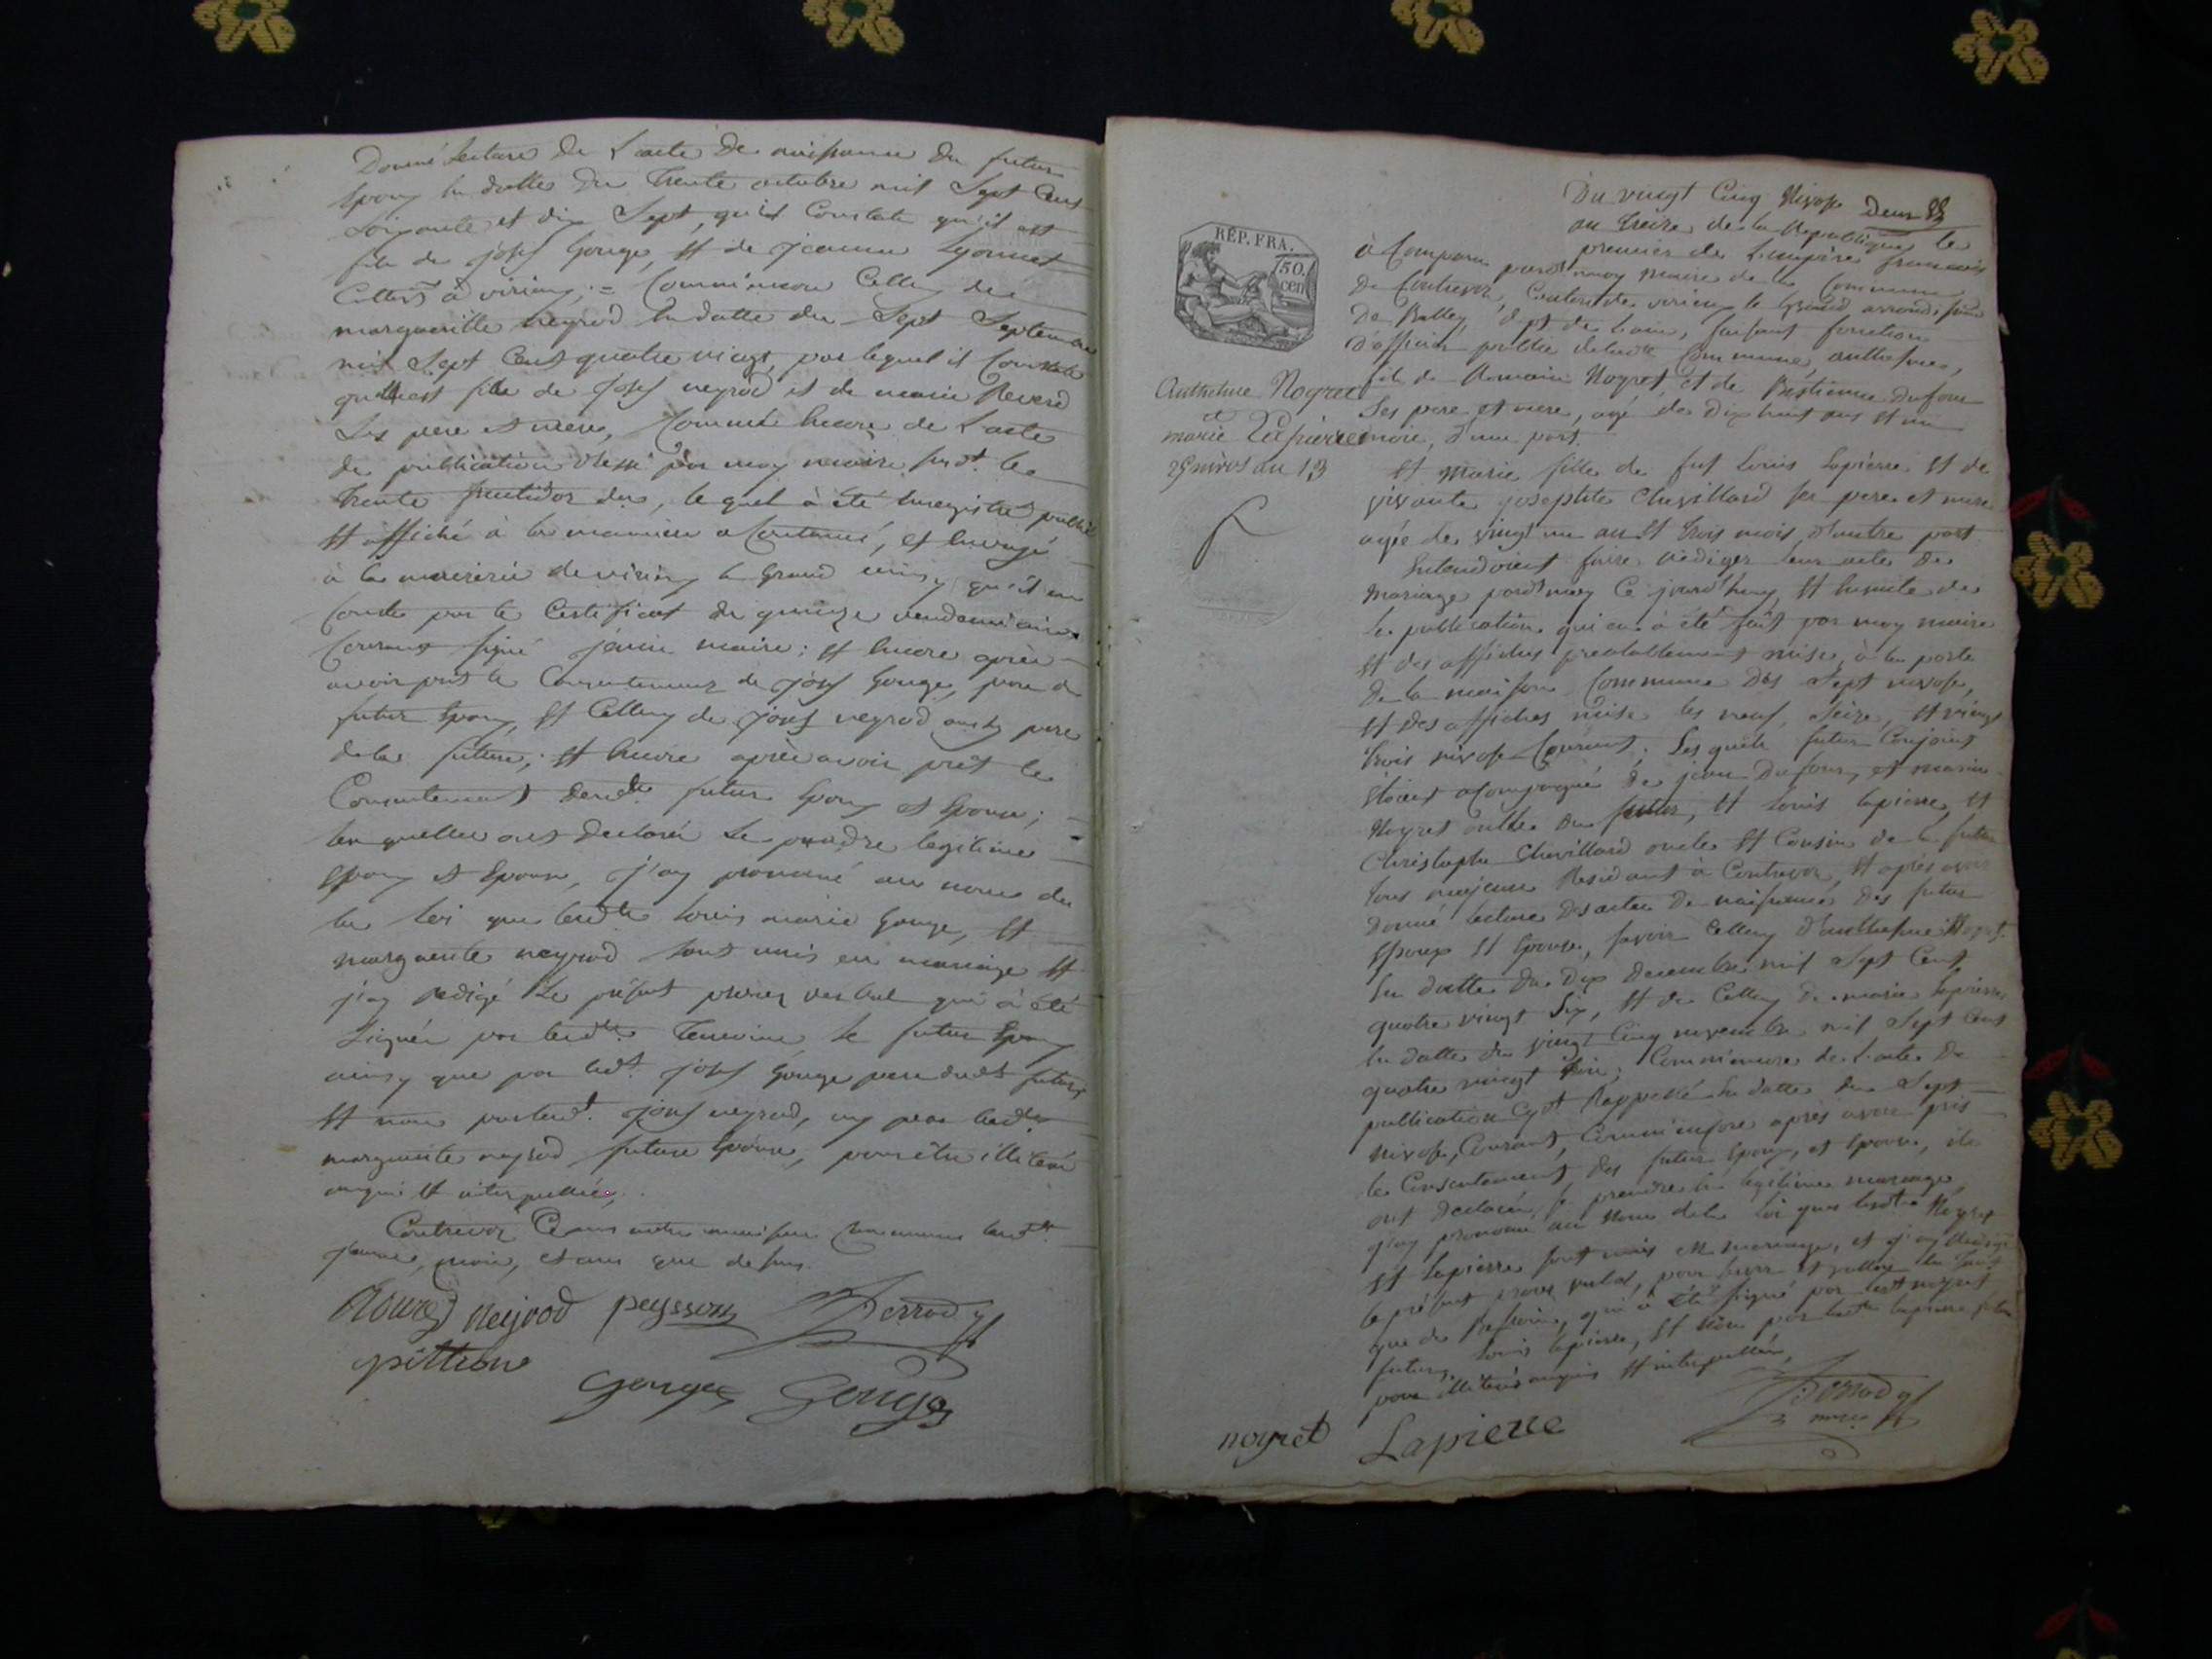 Donné lecture de L'acte de naissance du futur
Epoux en datte du trente octobre mil Sept Cent
soixante et dix Sept, qui Constate qu'il est
fils de josef Gonge, Et de jeanne Lyonnet
Cult.rs à virieux; = Comm'encore Celluy de
margueritte neyrod en datte du Sept Septembre
mil Sept Cent quatre vingt, par lequel il Constate
qu'elle est fille de Josef neyrod et de marie Reverd
Ses pere et mere, Comme Encore de L'acte
de publication dressé par moy maire sus.d. le
trente fructidor der, le quel à été Enregistré publié
Et affiché à la maniere acoutumé, et Envoyé
à la mairie de virieux le Grand ainsy qu'il en
Conste par le Certificat du quinze vendemiaire
Courant signé janin maire; Et Encore après
avoir prit le Consentement de josef Gonge, pere du
futur Epoux, Et Celluy de josef neyrod aussy pere
de la future; Et Encore après avoir prit le
Consentement desd.ts futur Epoux et Epouse;
lesquelles ont Declaré Se prendre legitime
Epoux et Epouse, j'ay prononcé au nom de
la loi que lesd.ts Louis marie Gonge, Et
marguerite neyrod sont unis en mariage Et
j'ay redigé Le présent procez verbal qui à été
Signée par lesd.ts temoins le futur Epoux
ainsy que par led.t josef Gonge pere dud.t futur
Et non par led.t josef neyrod, ny par lad.te
marguerite neyrod future Epouse, pour être illiteré
enquis Et interpellée,
Contrevoz Dans notre maison Commune lesd.ts
jour, mois, et an que dessus.
Neyrod peysson Perrod
pittion
Gonge Gonge
Du vingt Cinq Nivose
an treize de la Republique le
premier de L'empire francais
REP. FRA.
50.
cen
à Comparu pard.t moy maire de la Commune
de Contrevoz, Canton de virieux le Grand, arrondissem.t
De Belley, dep.t de L'ain, faisant fonction
D'officier public de lad.te Commune, anthelme,
fils de Romain Noyret, et de Bestienne Dufour
Ses pere et mere, agé de Dix huit ans et un
moi, d'une part.
Anthelme Noyret
et
marie Lapierre
25 nivos an 13
Et Marie fille de fut Louis Lapierre Et de
vivante josephte Chevillard ses pere et mere
agée de vingt un an Et trois mois, d'autre part
Entendoient faire rediger leur acte de
Mariage pard.t moy Ce jourd'huy, Et Ensuite de
la publication qui en à été fait par moy maire
Et des affiches prealablement mise à la porte
De la maison Commune Des Sept nivose,
Et des affiches mise les neuf, Seize, Et vingt
trois nivose Courant; Lesquels futur Conjoint
Etoient acompagné de jean Dufour, et marin
Noyret oncle du futur, Et Louis lapierre, Et
Christophe Chevillard oncle Et Cousin de la future
tous majeure Residant à Contrevoz, Et après avoir
Donné lecture des actes de naissance des futur
Epoux Et Epouse, savoir Celluy d'anthelme Noyret
En datte du Dix Decembre mil Sept Cent
quatre vingt Six, Et de Celluy de marie lapierre
En datte du vingt Cinq
quatre vingt trois; Comm'encore de l'acte de
publication Rappellé En datte du Sept
nivose, Courant, Comm'encore après avoir pris
le Consentement des futur Epoux, et Epouse, ils
ont Declaré, se prendre en legitime mariage
j'ay prononcé au nom de la loi que lesd.ts Noyret
Et lapierre sont unis en mariage, et j'ay Redigé
le présent procez verbal, pour servir et valloir en tant
que de Raison, qui à été signé par led.t noyret
futur, Louis lapierre, Et non par lad.te lapierre
pour illiteré enquis Et interpellée,
noyret Lapierre Perrod
maire